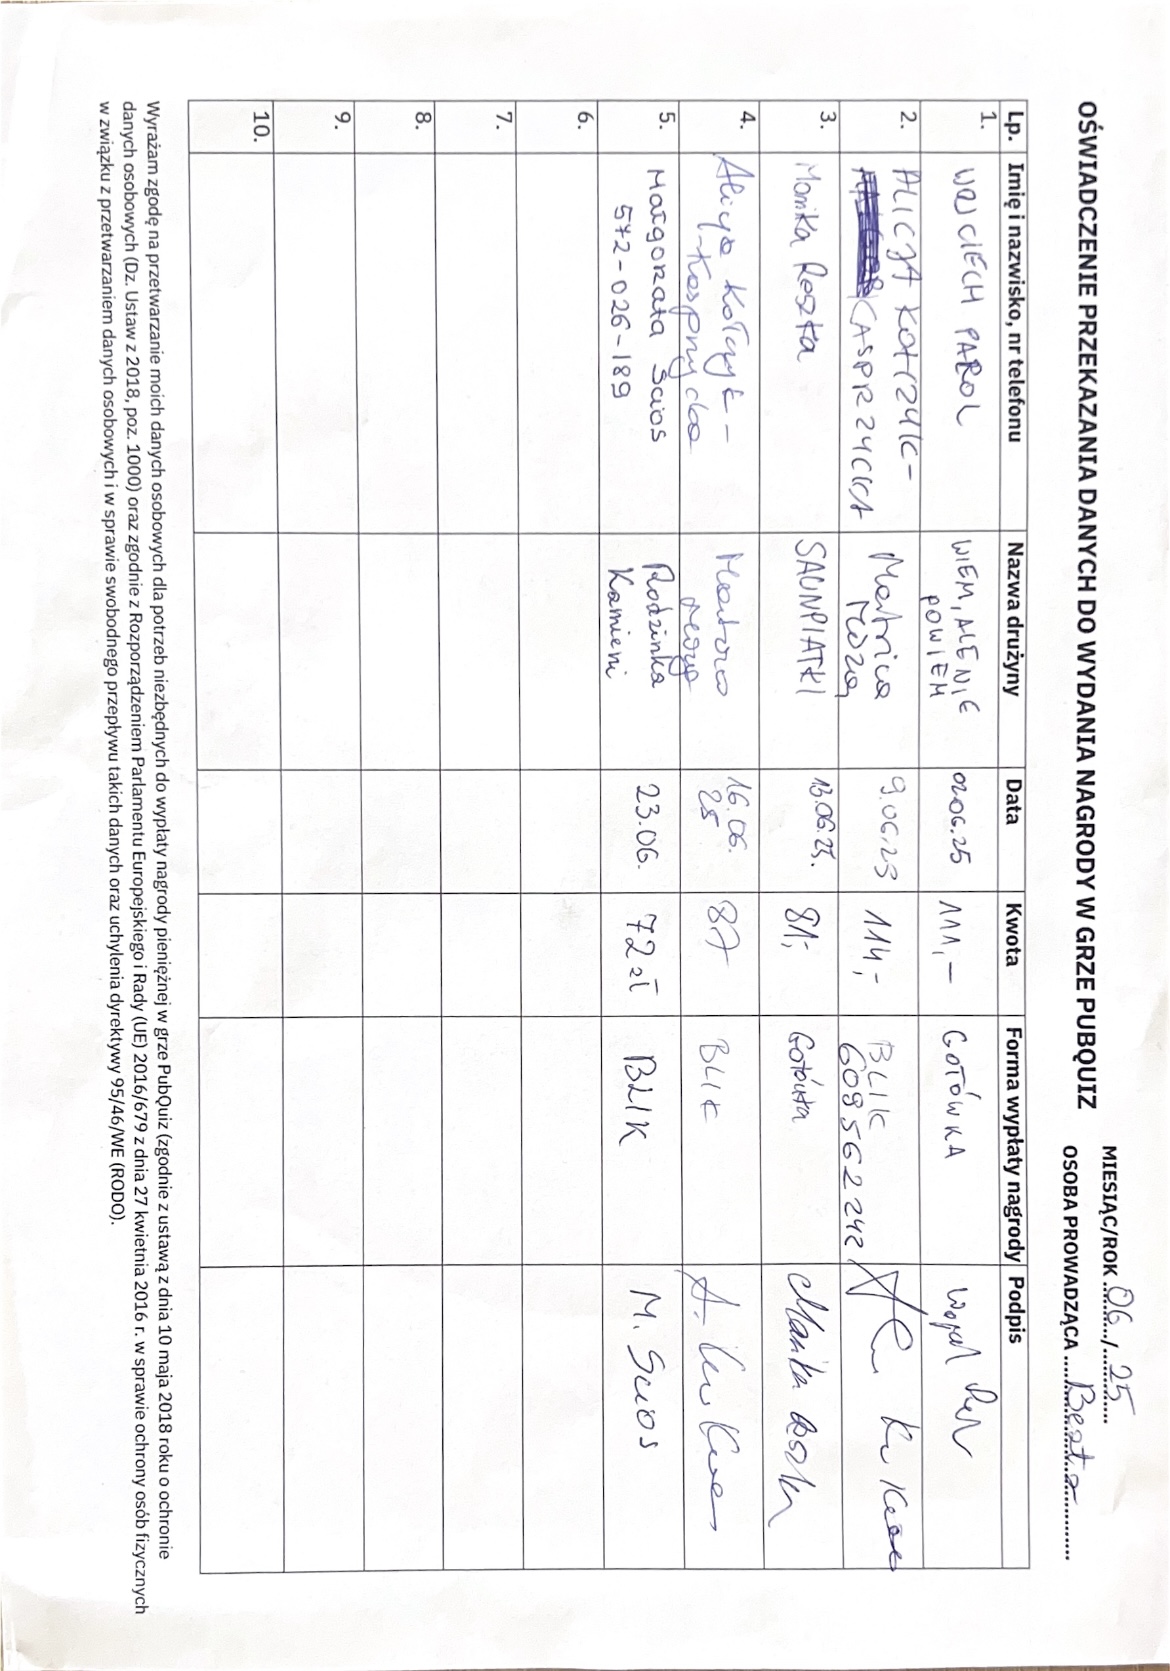 OŚWIADCZENIE PRZEKAZANIA DANYCH DO WYDANIA NAGRODY W GRZE PUBQUIZ
MIESIĄC/ROK 06/25
OSOBA PROWADZĄCA Beata
Lp. Imię i nazwisko, nr telefonu Nazwa drużyny Data Kwota Forma wypłaty nagrody Podpis
1. WOJCIECH PAROL WIEM, ALE NIE POWIEM 02.06.25 111,- GOTÓWKA
2. ALICJA KASPRZYCKA 9.06.25 114,- BLIK 609562242
3. Monika Reszka SAUNPIATKI 13.06.25. 81,- Gotówka Monika
4. Alicja 16.06.25 87 BLIK
5. Małgorzata Scios 572-026-189 Rodzinka Kamieni 23.06. 72 zł BLIK M. Scios
6.
7.
8.
9.
10.
Wyrażam zgodę na przetwarzanie moich danych osobowych dla potrzeb niezbędnych do wypłaty nagrody pieniężnej w grze PubQuiz (zgodnie z ustawą z dnia 10 maja 2018 roku o ochronie
danych osobowych (Dz. Ustaw z 2018, poz. 1000) oraz zgodnie z Rozporządzeniem Parlamentu Europejskiego i Rady (UE) 2016/679 z dnia 27 kwietnia 2016 r. w sprawie ochrony osób fizycznych
w związku z przetwarzaniem danych osobowych i w sprawie swobodnego przepływu takich danych oraz uchylenia dyrektywy 95/46/WE (RODO).